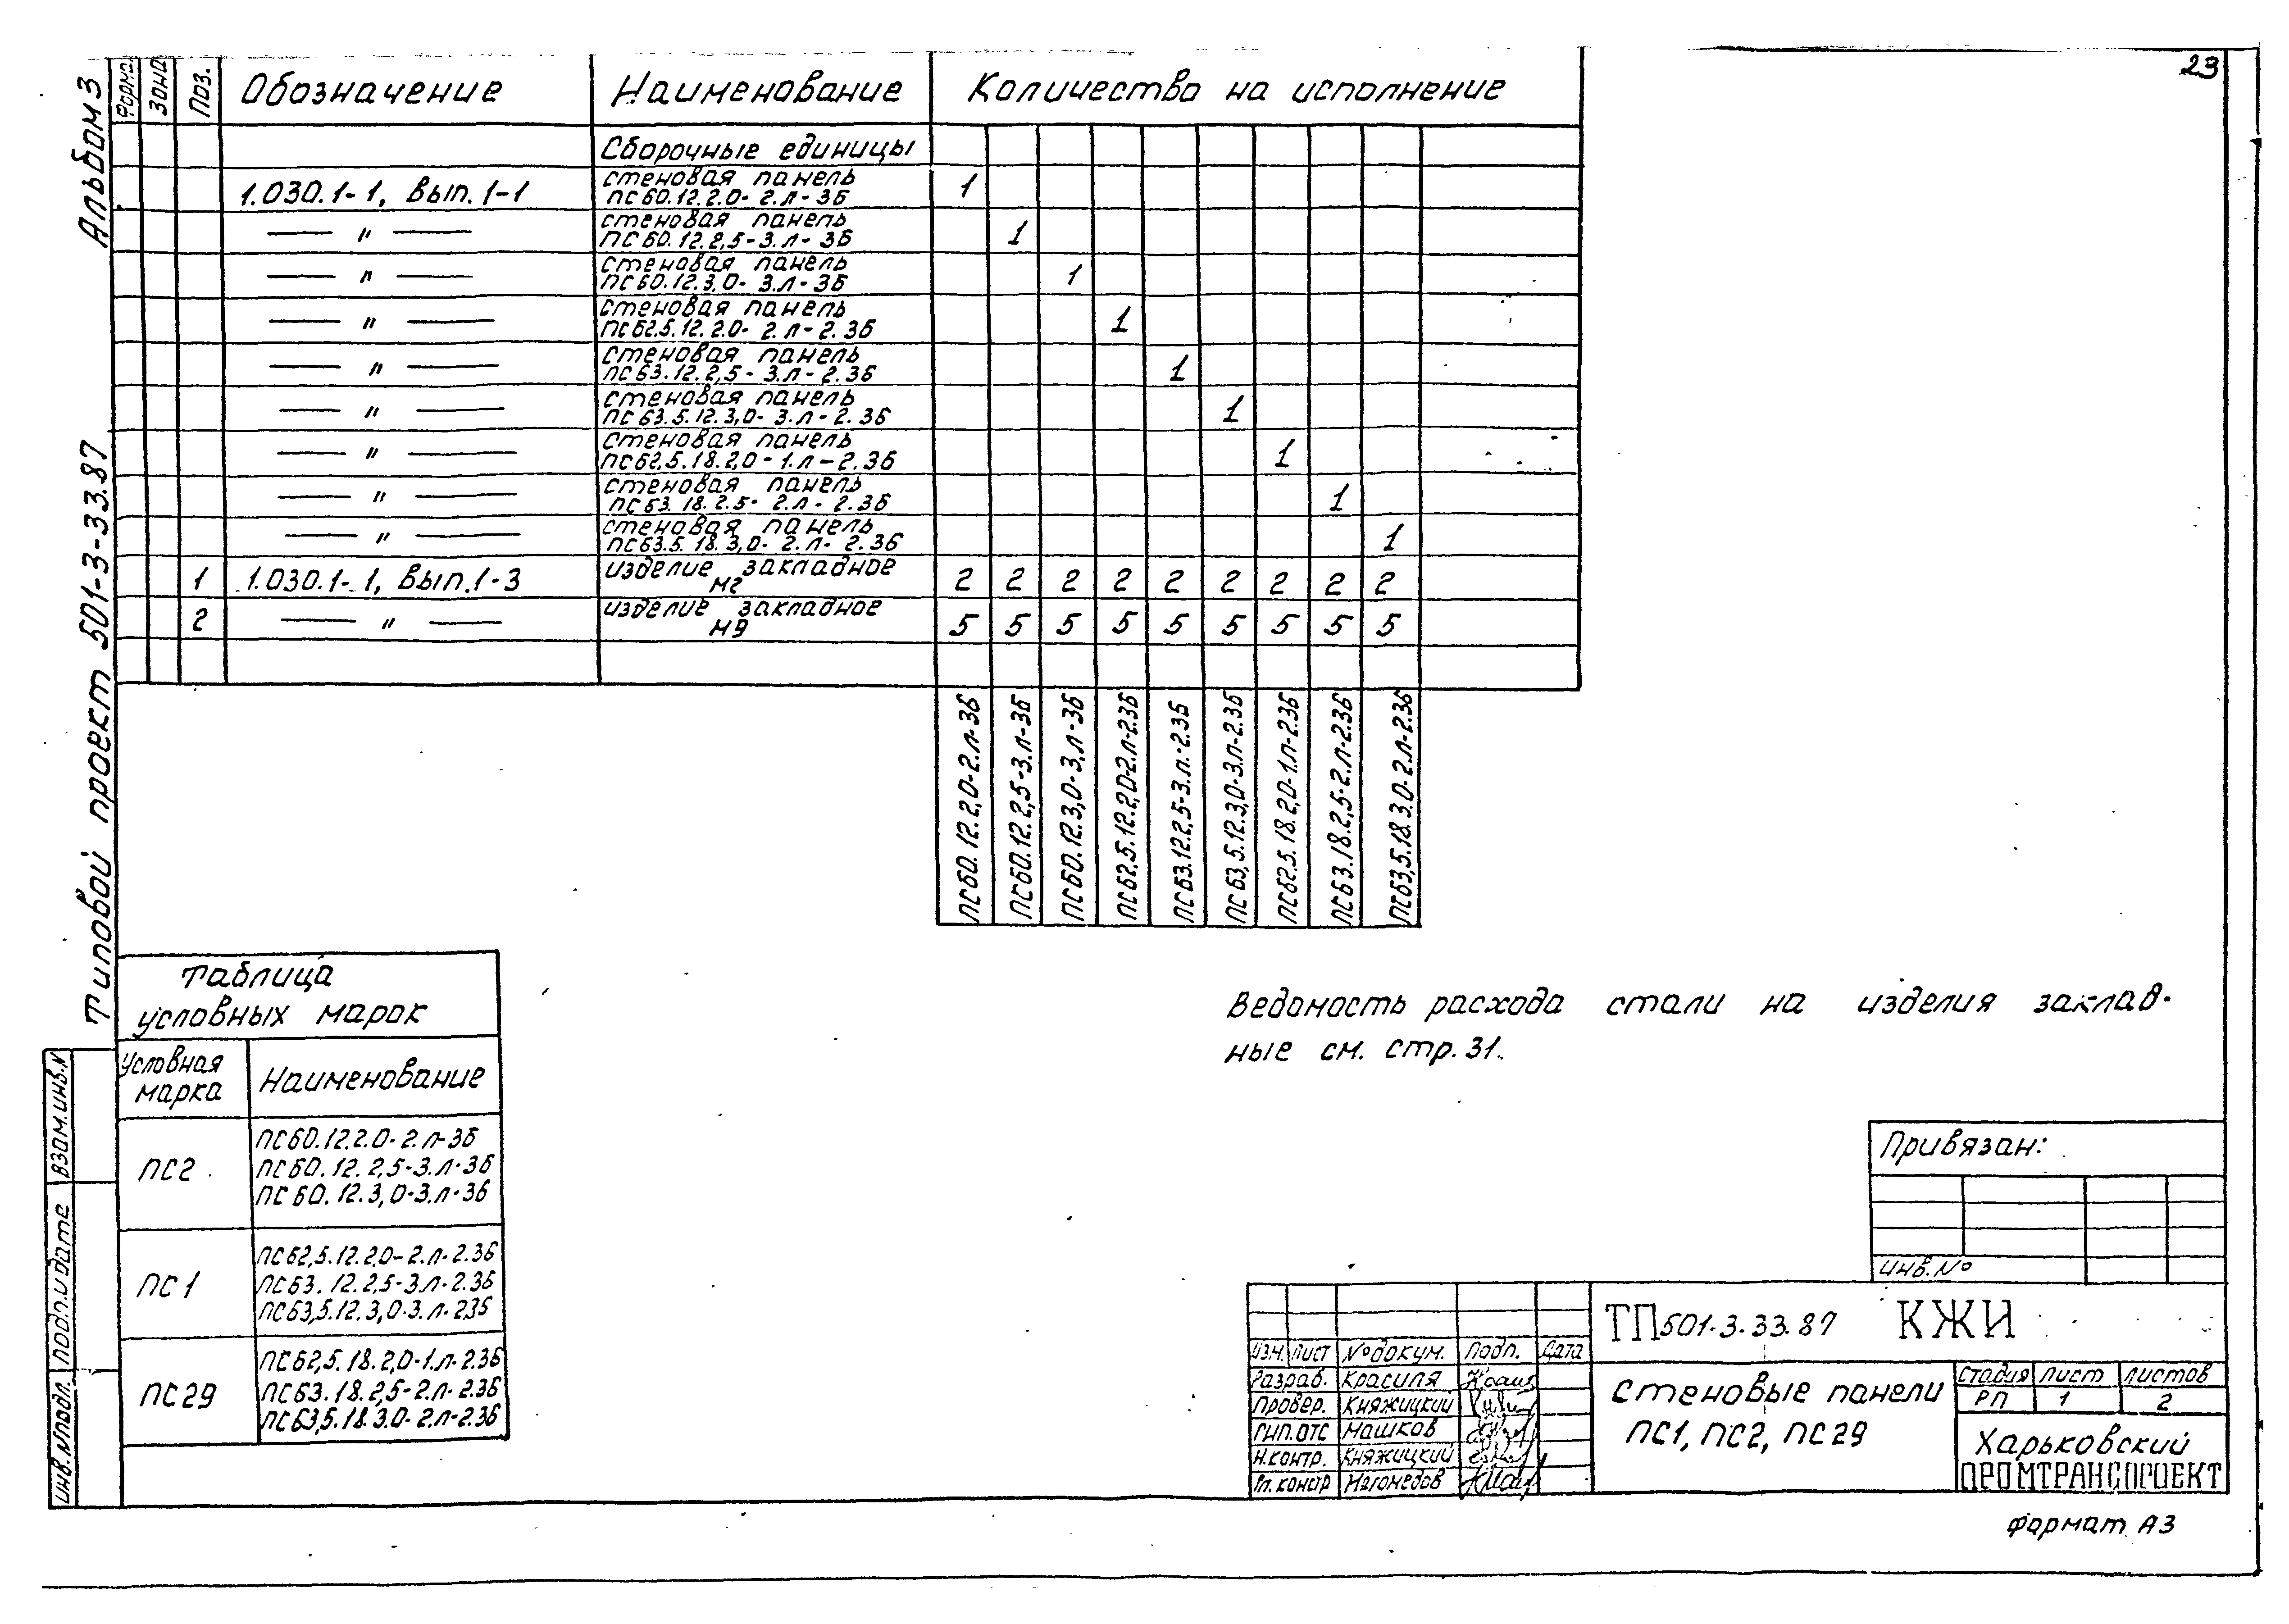 23
Альбом 3
Типовой проект 501-3-33.87
Формат Зона Поз. Обозначение Наименование Количество на исполнение
Сборочные единицы
1.030.1-1, вып. 1-1 стеновая панель ПС60.12.2.0-2.л-3Б 1
— " — стеновая панель ПС60.12.2,5-3.л-3Б 1
— " — стеновая панель ПС60.12.3,0-3.л-3Б 1
— " — стеновая панель ПС62.5.12.2.0-2.л-2.3Б 1
— " — стеновая панель ПС63.12.2,5-3.л-2.3Б 1
— " — стеновая панель ПС63.5.12.3,0-3.л-2.3Б 1
— " — стеновая панель ПС62,5.18.2,0-1.л-2.3Б 1
— " — стеновая панель ПС63.18.2.5-2.л-2.3Б 1
— " — стеновая панель ПС63.5.18.3,0-2.л-2.3Б 1
1 1.030.1-1, вып.1-3 изделие закладное М2 2 2 2 2 2 2 2 2 2
2 — " — изделие закладное М9 5 5 5 5 5 5 5 5 5
ПС60.12.2,0-2.л-3Б
ПС60.12.2,5-3.л-3Б
ПС60.12.3,0-3.л-3Б
ПС62,5.12.2,0-2.л-2.3Б
ПС63.12.2,5-3.л.-2.3Б
ПС63,5.12.3,0-3.л-2.3Б
ПС62.5.18.2,0-1.л-2.3Б
ПС63.18.2,5-2.л-2.3Б
ПС63,5.18.3.0-2.л-2.3Б
Таблица
условных марок
Условная марка Наименование
ПС2
ПС60.12.2.0-2.л-3Б
ПС60.12.2,5-3.л-3Б
ПС60.12.3,0-3.л-3Б
ПС1
ПС62,5.12.2,0-2.л-2.3Б
ПС63.12.2,5-3.л-2.3Б
ПС63,5.12.3,0-3.л-2.3Б
ПС29
ПС62,5.18.2,0-1.л-2.3Б
ПС63.18.2,5-2.л-2.3Б
ПС63,5.18.3.0-2.л-2.3Б
Ведомость расхода стали на изделия заклад-
ные см. стр. 31.
Привязан:
Инв.№
Взам.инв.N
Подп.и дата
Инв.Nподл.
Изм. Лист №докум. Подп. Дата
Разраб. Красиля
Провер. Княжицкий
ГИП.ОТС Машков
Н.контр. Княжицкий
Гл.констр Магомедов
ТП 501-3-33.87 КЖИ
Стеновые панели
ПС1, ПС2, ПС29
Стадия Лист Листов
РП 1 2
Харьковский
ПРОМТРАНСПРОЕКТ
Формат А3